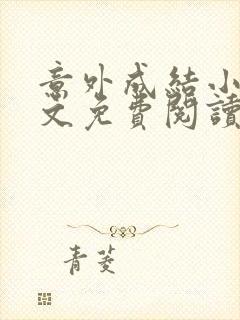 意外成結小
文免費閱讀
青菱